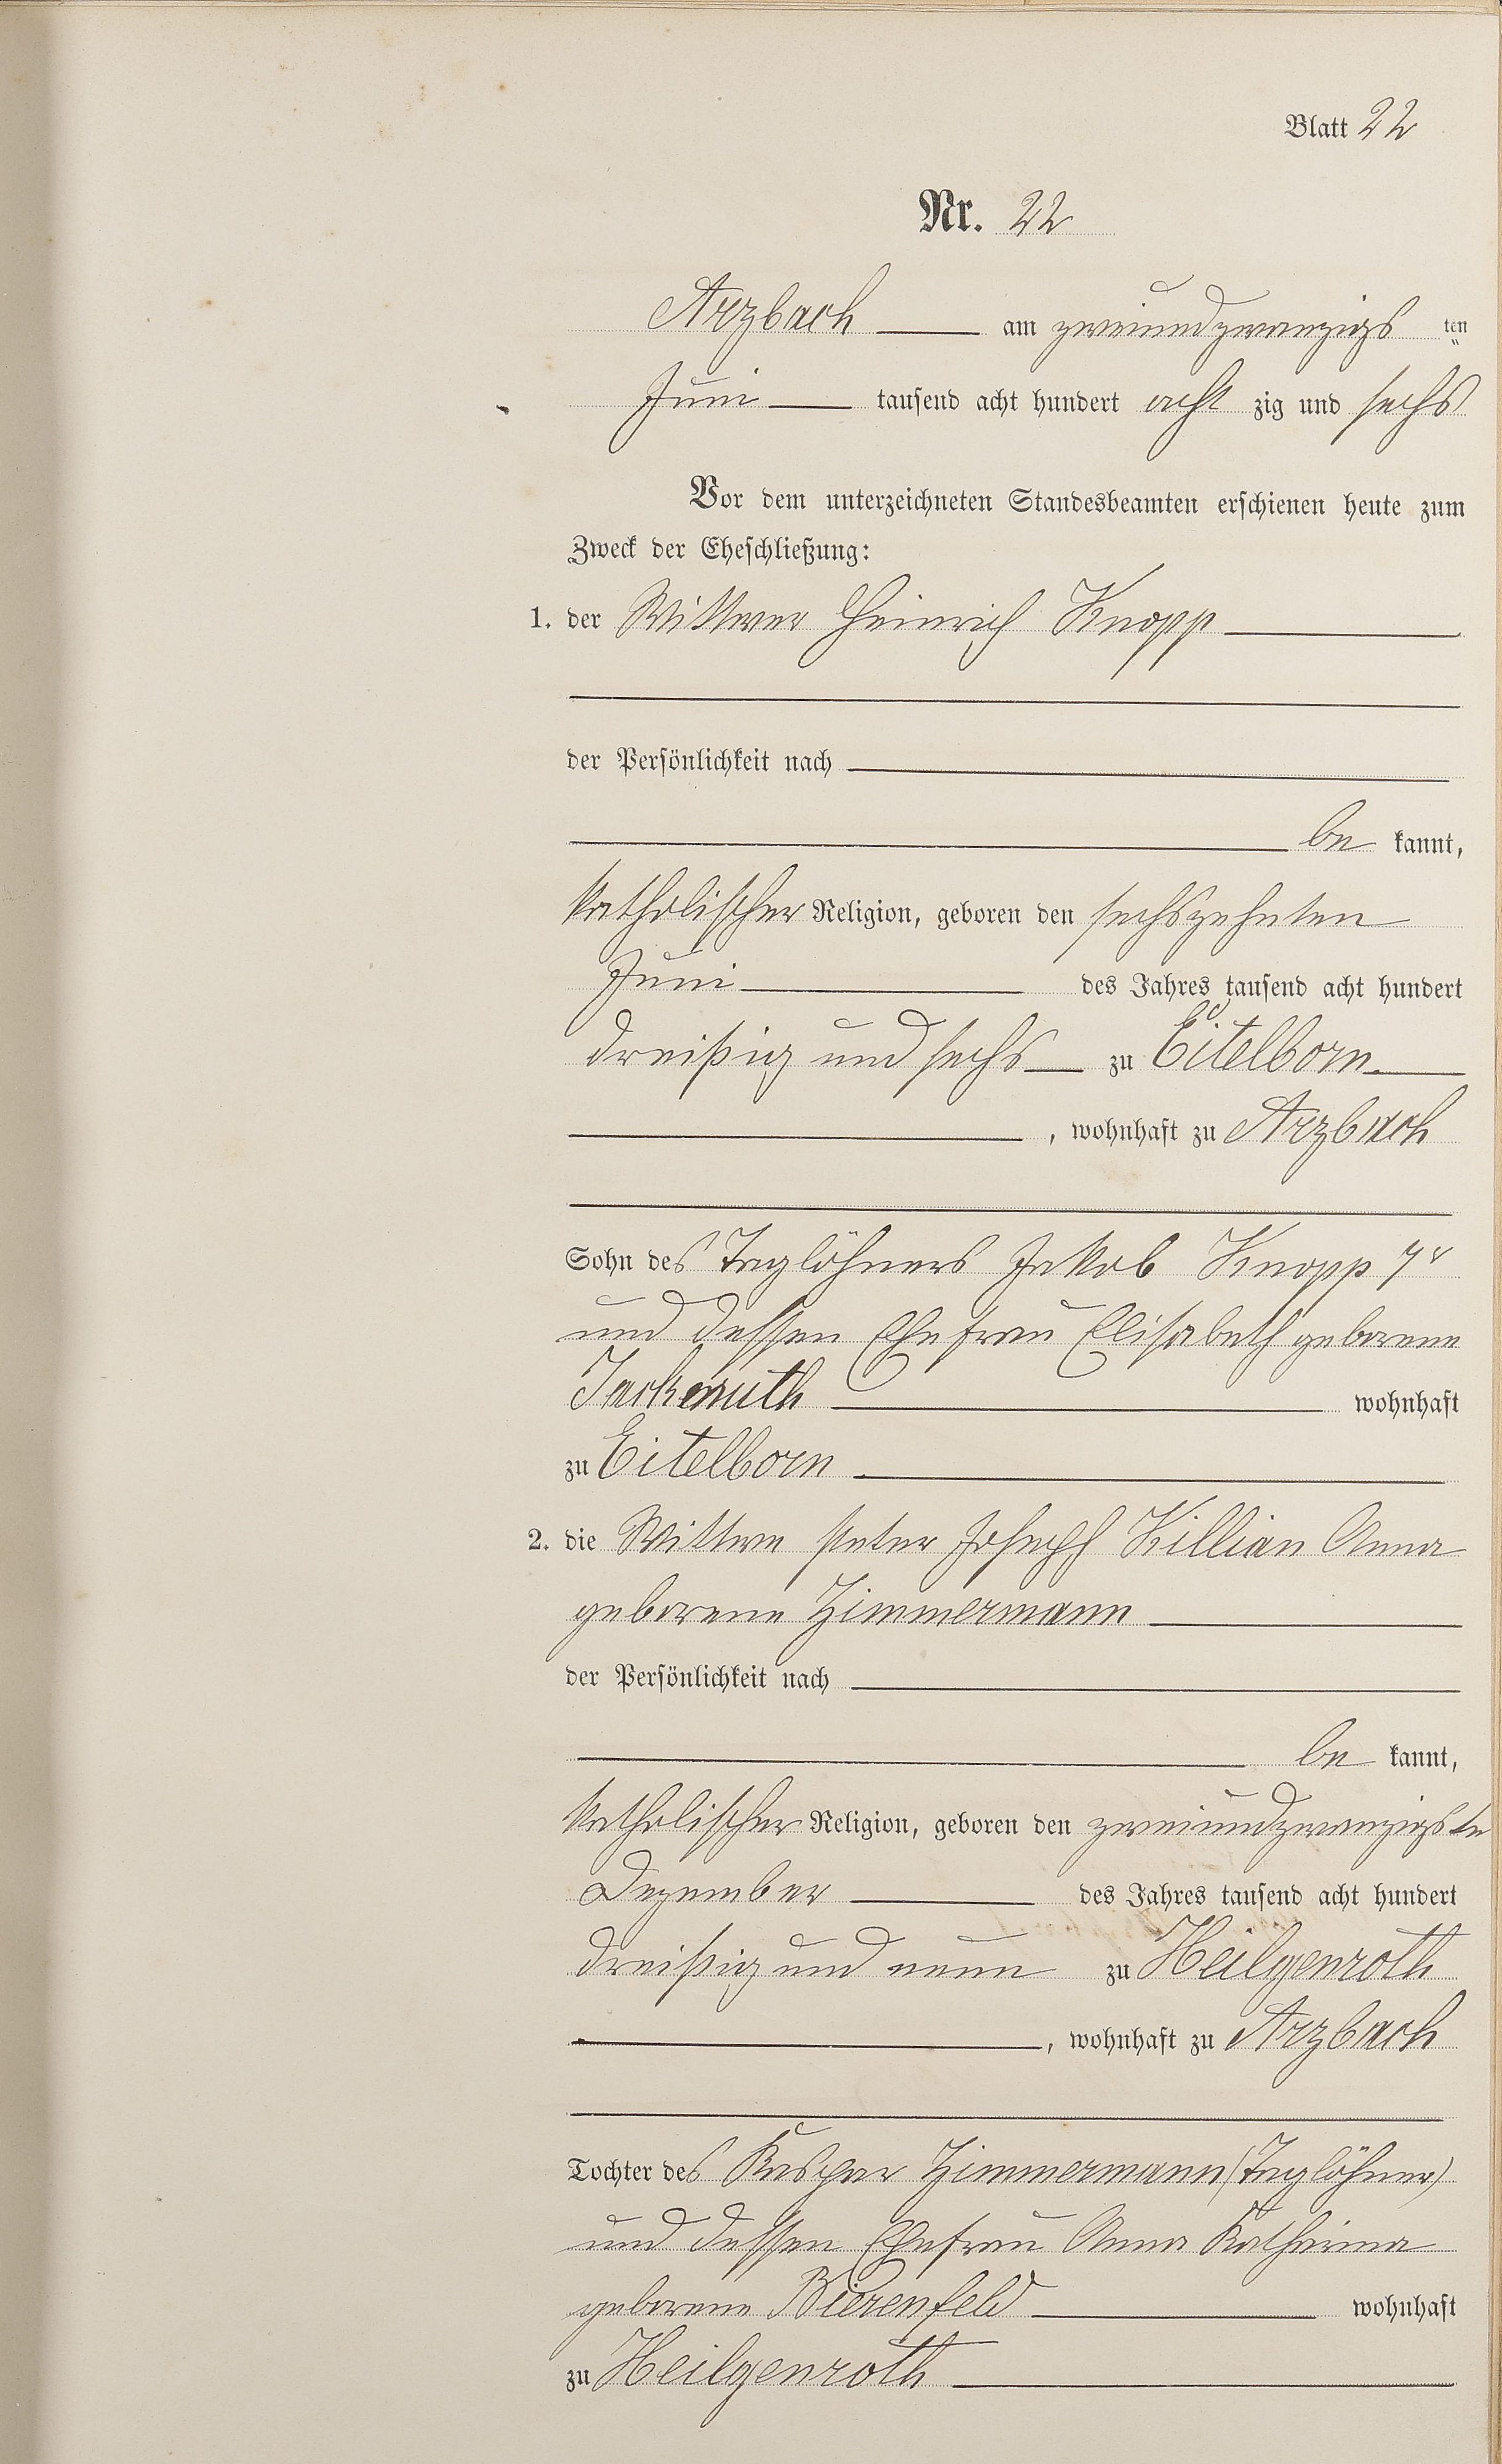 Blatt 22
Nr. 22
Arzbach am zweiundzwanzigs ten
Juni tausend acht hundert acht zig und sechs
Vor dem unterzeichneten Standesbeamten erschienen heute zum
Zweck der Eheschließung:
1. der Wittwer Heinrich Knopp
der Persönlichkeit nach
be kannt,
katholischer Religion, geboren den sechszehnten
Juni des Jahres tausend acht hundert
dreißig und sechs zu Eitelborn
, wohnhaft zu Arzbach
Sohn des Taglöhners Jakob Knopp
und dessen Ehefrau Elisabeth geborene
wohnhaft
zu Eitelborn
2. die Wittwe Peter Joseph Killian Anna
geborene Zimmermann
der Persönlichkeit nach
be kannt,
katholischer Religion, geboren den zweiundzwanzigsten
Dezember des Jahres tausend acht hundert
dreißig und neun zu Heilgenroth
, wohnhaft zu Arzbach
Tochter des Kaspar Zimmermann (Taglöhner)
und dessen Ehefrau Anna Katharina
geborene Bierenfeld wohnhaft
zu Heilgenroth